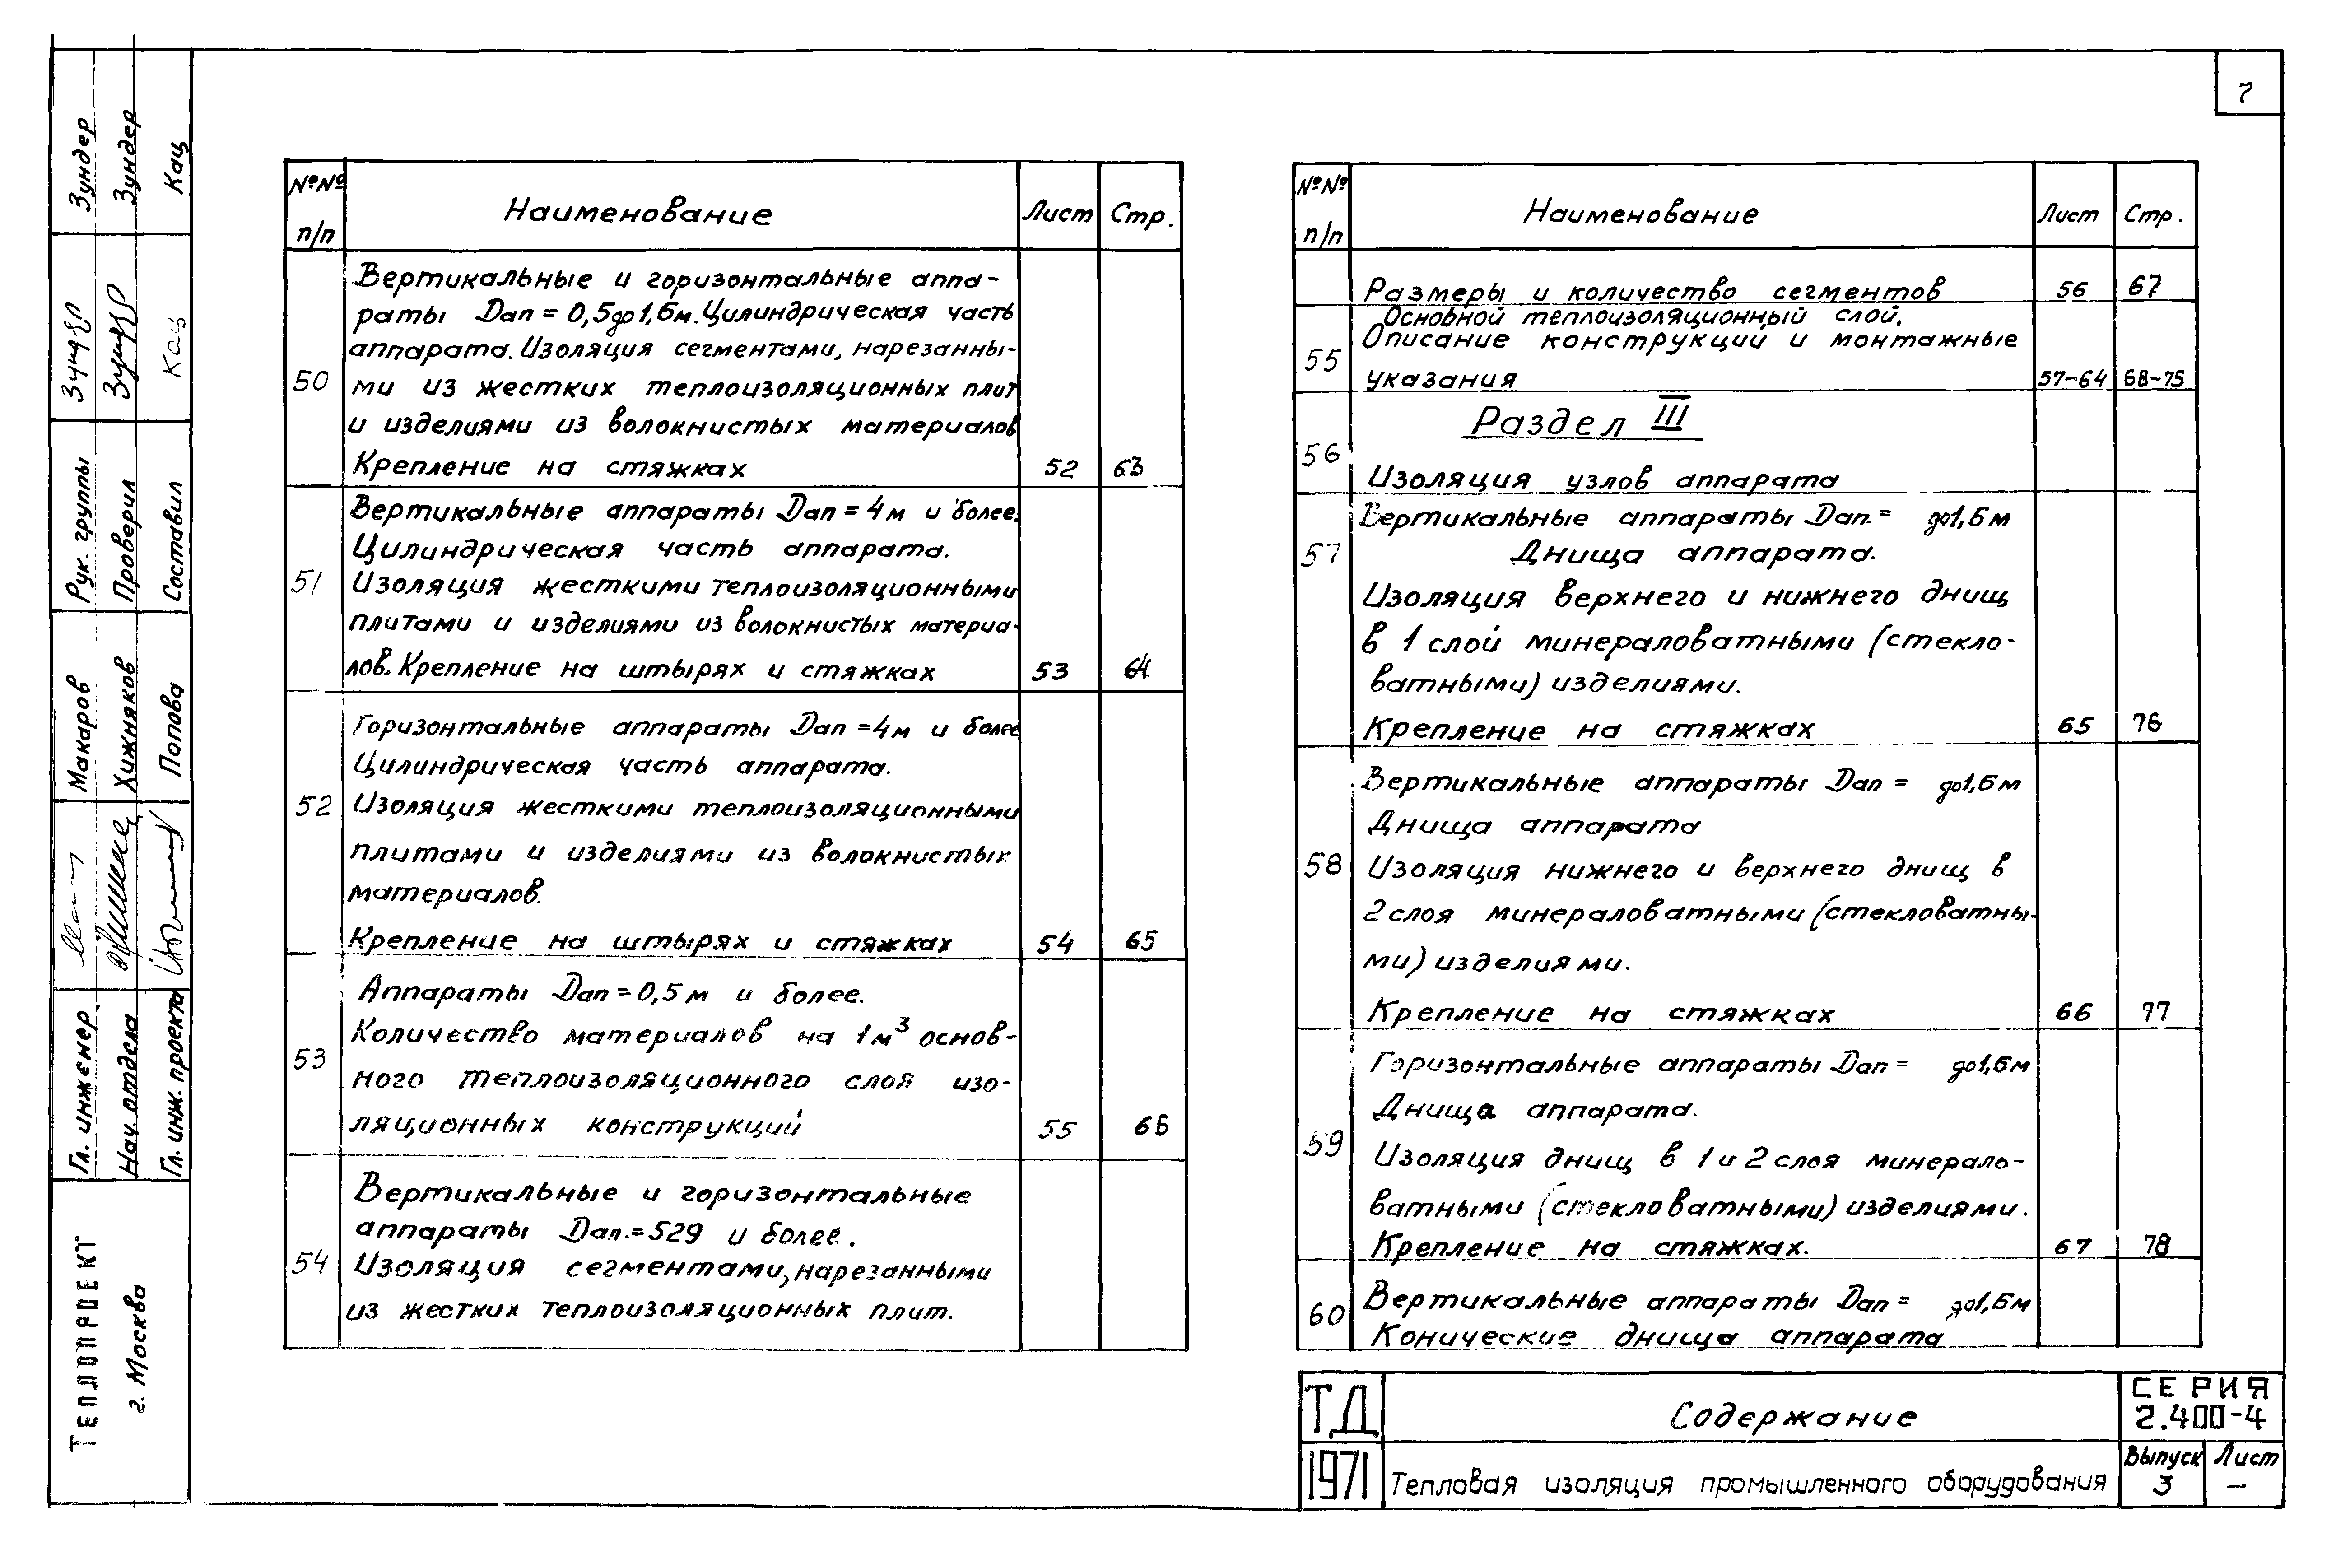 7
№№ п/п
Наименование
Лист
Стр.
50
Вертикальные и горизонтальные аппа-
раты Dап = 0,5 до 1,6м. Цилиндрическая часть
аппарата. Изоляция сегментами, нарезанны-
ми из жестких теплоизоляционных плит
и изделиями из волокнистых материалов
Крепление на стяжках 52 63
51
Вертикальные аппараты Dап = 4м и более.
Цилиндрическая часть аппарата.
Изоляция жесткими теплоизоляционными
плитами и изделиями из волокнистых материа-
лов. Крепление на штырях и стяжках 53 64
52
Горизонтальные аппараты Dап = 4м и более
Цилиндрическая часть аппарата.
Изоляция жесткими теплоизоляционными
плитами и изделиями из волокнистых
материалов.
Крепление на штырях и стяжках 54 65
53
Аппараты Dап = 0,5м и более.
Количество материалов на 1м³ основ-
ного теплоизоляционного слоя изо-
ляционных конструкций 55 66
54
Вертикальные и горизонтальные
аппараты Dап.=529 и более.
Изоляция сегментами, нарезанными
из жестких теплоизоляционных плит.
№№ п/п
Наименование
Лист
Стр.
Размеры и количество сегментов 56 67
55
Основной теплоизоляционный слой.
Описание конструкций и монтажные
указания 57-64 68-75
56
Раздел III
Изоляция узлов аппарата
57
Вертикальные аппараты Dап. = до1,6м
Днища аппарата.
Изоляция верхнего и нижнего днищ
в 1 слой минераловатными (стекло-
ватными) изделиями.
Крепление на стяжках 65 76
58
Вертикальные аппараты Dап = до1,6м
Днища аппарата
Изоляция нижнего и верхнего днищ в
2 слоя минераловатными (стекловатны-
ми) изделиями.
Крепление на стяжках 66 77
59
Горизонтальные аппараты Dап = до1,6м
Днища аппарата.
Изоляция днищ в 1 и 2 слоя минерало-
ватными (стекловатными) изделиями.
Крепление на стяжках. 67 78
60
Вертикальные аппараты Dап = до1,6м
Конические днища аппарата
ТД
1971
Содержание
Тепловая изоляция промышленного оборудования
СЕРИЯ
2.400-4
Выпуск
3
Лист
—
Зундер
Зундер
Кац
Кац
Рук. группы
Проверил
Составил
Макаров
Хижняков
Попова
Гл. инженер
Нач. отдела
Гл. инж. проекта
ТЕПЛОПРОЕКТ
г. Москва